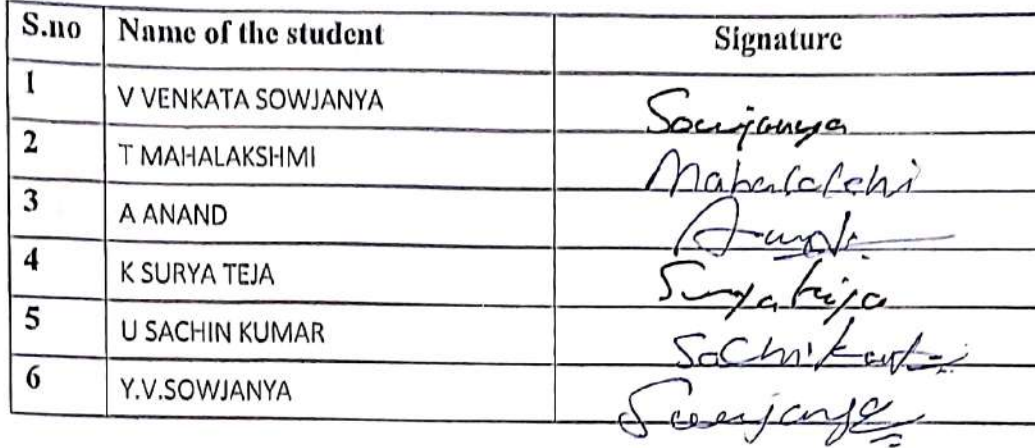 S.no Name of the student Signature
1 V VENKATA SOWJANYA Sowjanya
2 T MAHALAKSHMI
3 A ANAND Anand
4 K SURYA TEJA Suryateja
5 U SACHIN KUMAR
6 Y.V.SOWJANYA Sowjanya